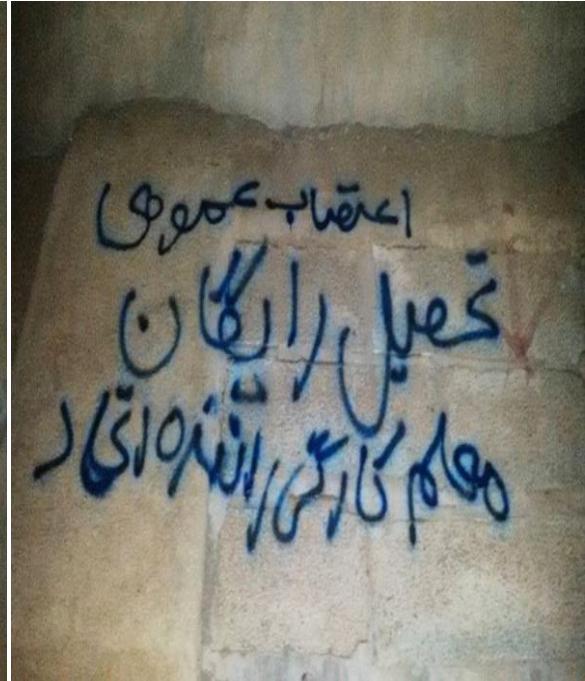 اعتصاب عمومی
تحصیل رایگان
معلم کارگر راننده اتحاد